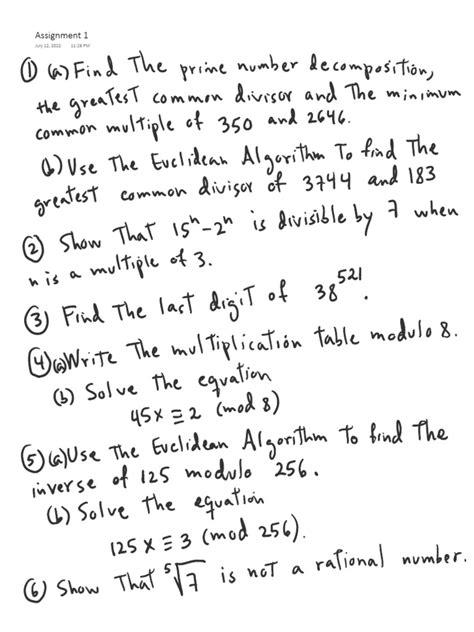 Assignment 1
July 12, 2022 11:28 PM
① (a) Find The prime number decomposition,
the greatest common divisor and The minimum
common multiple of 350 and 2646.
(b) Use The Euclidean Algorithm To find The
greatest common divisor of 3744 and 183
② Show That 15ⁿ-2ⁿ is divisible by 7 when
n is a multiple of 3.
③ Find The last digit of 38⁵²¹.
④ (a) Write The multiplication table modulo 8.
(b) Solve the equation
45x ≡ 2 (mod 8)
⑤ (a) Use The Euclidean Algorithm To find The
inverse of 125 modulo 256.
(b) Solve The equation
125 x ≡ 3 (mod 256).
⑥ Show That ⁵√7 is not a rational number.